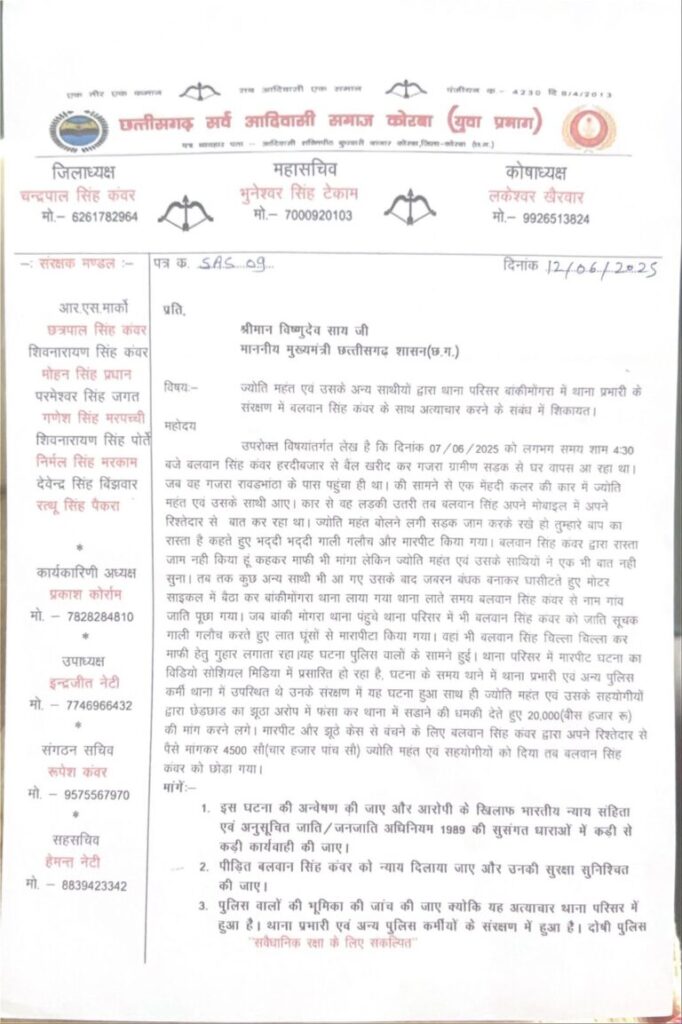 एक तीर एक कमान सब आदिवासी एक समान पंजीयन क - 4230 दि 8/4/2013
छत्तीसगढ़ सर्व आदिवासी समाज कोरबा (युवा प्रभाग)
पत्र व्यवहार पता - आदिवासी शक्तिपीठ बुधवारी बाजार कोरबा,जिला-कोरबा (छ.ग.)
जिलाध्यक्ष
चन्द्रपाल सिंह कंवर
मो.– 6261782964
महासचिव
भुनेश्वर सिंह टेकाम
मो.– 7000920103
कोषाध्यक्ष
लकेश्वर खैरवार
मो.– 9926513824
–: संरक्षक मण्डल :–
आर.एस.मार्को
छत्रपाल सिंह कंवर
शिवनारायण सिंह कंवर
मोहन सिंह प्रधान
परमेश्वर सिंह जगत
गणेश सिंह मरपच्ची
शिवनारायण सिंह पोर्ते
निर्मल सिंह मरकाम
देवेन्द्र सिंह विंझवार
रत्थू सिंह पैकरा
*
कार्यकारिणी अध्यक्ष
प्रकाश कोर्राम
मो. – 7828284810
*
उपाध्यक्ष
इन्द्रजीत नेटी
मो. – 7746966432
*
संगठन सचिव
रूपेश कंवर
मो. – 9575567970
*
सहसचिव
हेमन्त नेटी
मो. – 8839423342
पत्र क. SAS 09 दिनांक 12/06/2025
प्रति,
श्रीमान विष्णुदेव साय जी
माननीय मुख्यमंत्री छत्तीसगढ़ शासन(छ.ग.)
विषयः– ज्योति महंत एवं उसके अन्य साथीयों द्वारा थाना परिसर बांकीमोंगरा में थाना प्रभारी के
संरक्षण में बलवान सिंह कंवर के साथ अत्याचार करने के संबंध में शिकायत।
महोदय
उपरोक्त विषयांतर्गत लेख है कि दिनांक 07/06/2025 को लगभग समय शाम 4:30
बजे बलवान सिंह कंवर हरदीबजार से बैल खरीद कर गजरा ग्रामीण सडक से घर वापस आ रहा था।
जब वह गजरा रावडभांठा के पास पहुंचा ही था। की सामने से एक मेहदी कलर की कार में ज्योति
महंत एवं उसके साथी आए। कार से वह लड़की उतरी तब बलवान सिंह अपने मोबाइल में अपने
रिश्तेदार से बात कर रहा था। ज्योति महंत बोलने लगी सडक जाम करके रखे हो तुम्हारे बाप का
रास्ता है कहते हुए भद्दी भद्दी गाली गलौच और मारपीट किया गया। बलवान सिंह कंवर द्वारा रास्ता
जाम नही किया हूं कहकर माफी भी मांगा लेकिन ज्योति महंत एवं उसके साथियों ने एक भी बात नही
सुना। तब तक कुछ अन्य साथी भी आ गए उसके बाद जबरन बंधक बनाकर घासीटते हुए मोटर
साइकल में बैठा कर बांकीमोंगरा थाना लाया गया थाना लाते समय बलवान सिंह कंवर से नाम गांव
जाति पूछा गया। जब बांकी मोगरा थाना पंहुचे थाना परिसर में भी बलवान सिंह कंवर को जाति सूचक
गाली गलौच करते हुए लात घूंसों से मारापीटा किया गया। वहां भी बलवान सिंह चिल्ला चिल्ला कर
माफी हेतु गुहार लगाता रहा।यह घटना पुलिस वालों के सामने हुई। थाना परिसर में मारपीट घटना का
विडियो सोशियल मिडिया में प्रसारित हो रहा है, घटना के समय थाने में थाना प्रभारी एवं अन्य पुलिस
कर्मी थाना में उपस्थित थे उनके संरक्षण में यह घटना हुआ साथ ही ज्योति महंत एवं उसके सहयोगीयों
द्वारा छेडछाड का झूठा अरोप में फंसा कर थाना में सडाने की धमकी देते हुए 20,000(बीस हजार रू)
की मांग करने लगे। मारपीट और झूठे केस से बंचने के लिए बलवान सिंह कंवर द्वारा अपने रिश्तेदार से
पैसे मांगकर 4500 सौ(चार हजार पांच सौ) ज्योति महंत एवं सहयोगीयों को दिया तब बलवान सिंह
कंवर को छोडा गया।
मांगेंः–
1. इस घटना की अन्वेषण की जाए और आरोपी के खिलाफ भारतीय न्याय संहिता
एवं अनुसूचित जाति/जनजाति अधिनियम 1989 की सुसंगत धाराओं में कडी से
कड़ी कार्यवाही की जाए।
2. पीड़ित बलवान सिंह कंवर को न्याय दिलाया जाए और उनकी सुरक्षा सुनिश्चित
की जाए।
3. पुलिस वालों की भूमिका की जांच की जाए क्योकि यह अत्याचार थाना परिसर में
हुआ है। थाना प्रभारी एवं अन्य पुलिस कर्मीयों के संरक्षण में हुआ है। दोषी पुलिस
"सवैधानिक रक्षा के लिए सकल्पित"